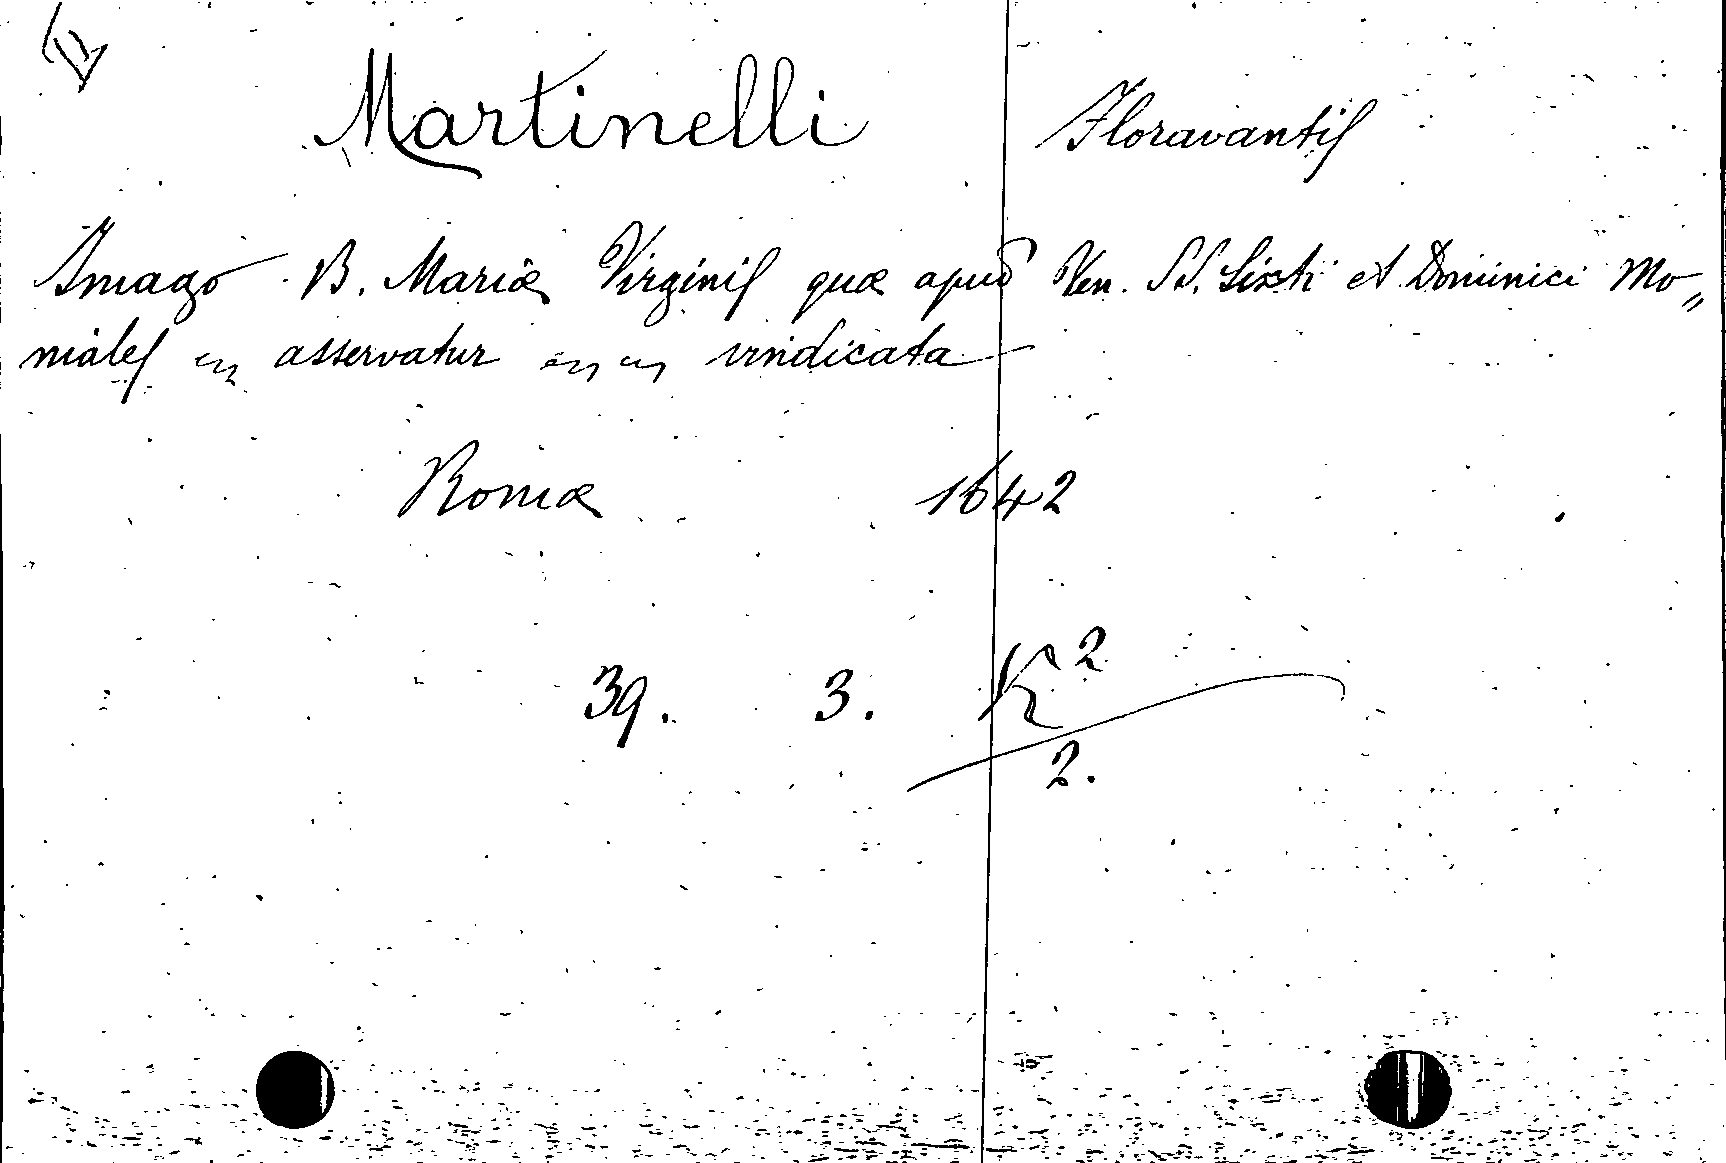 Martinelli Floravantis
Imago B. Mariæ Virginis quæ apud Ven. SS. Sixti et Dominici Mo„
niales asservatur vindicata
Romæ 1642
39. 3. K 2
2.